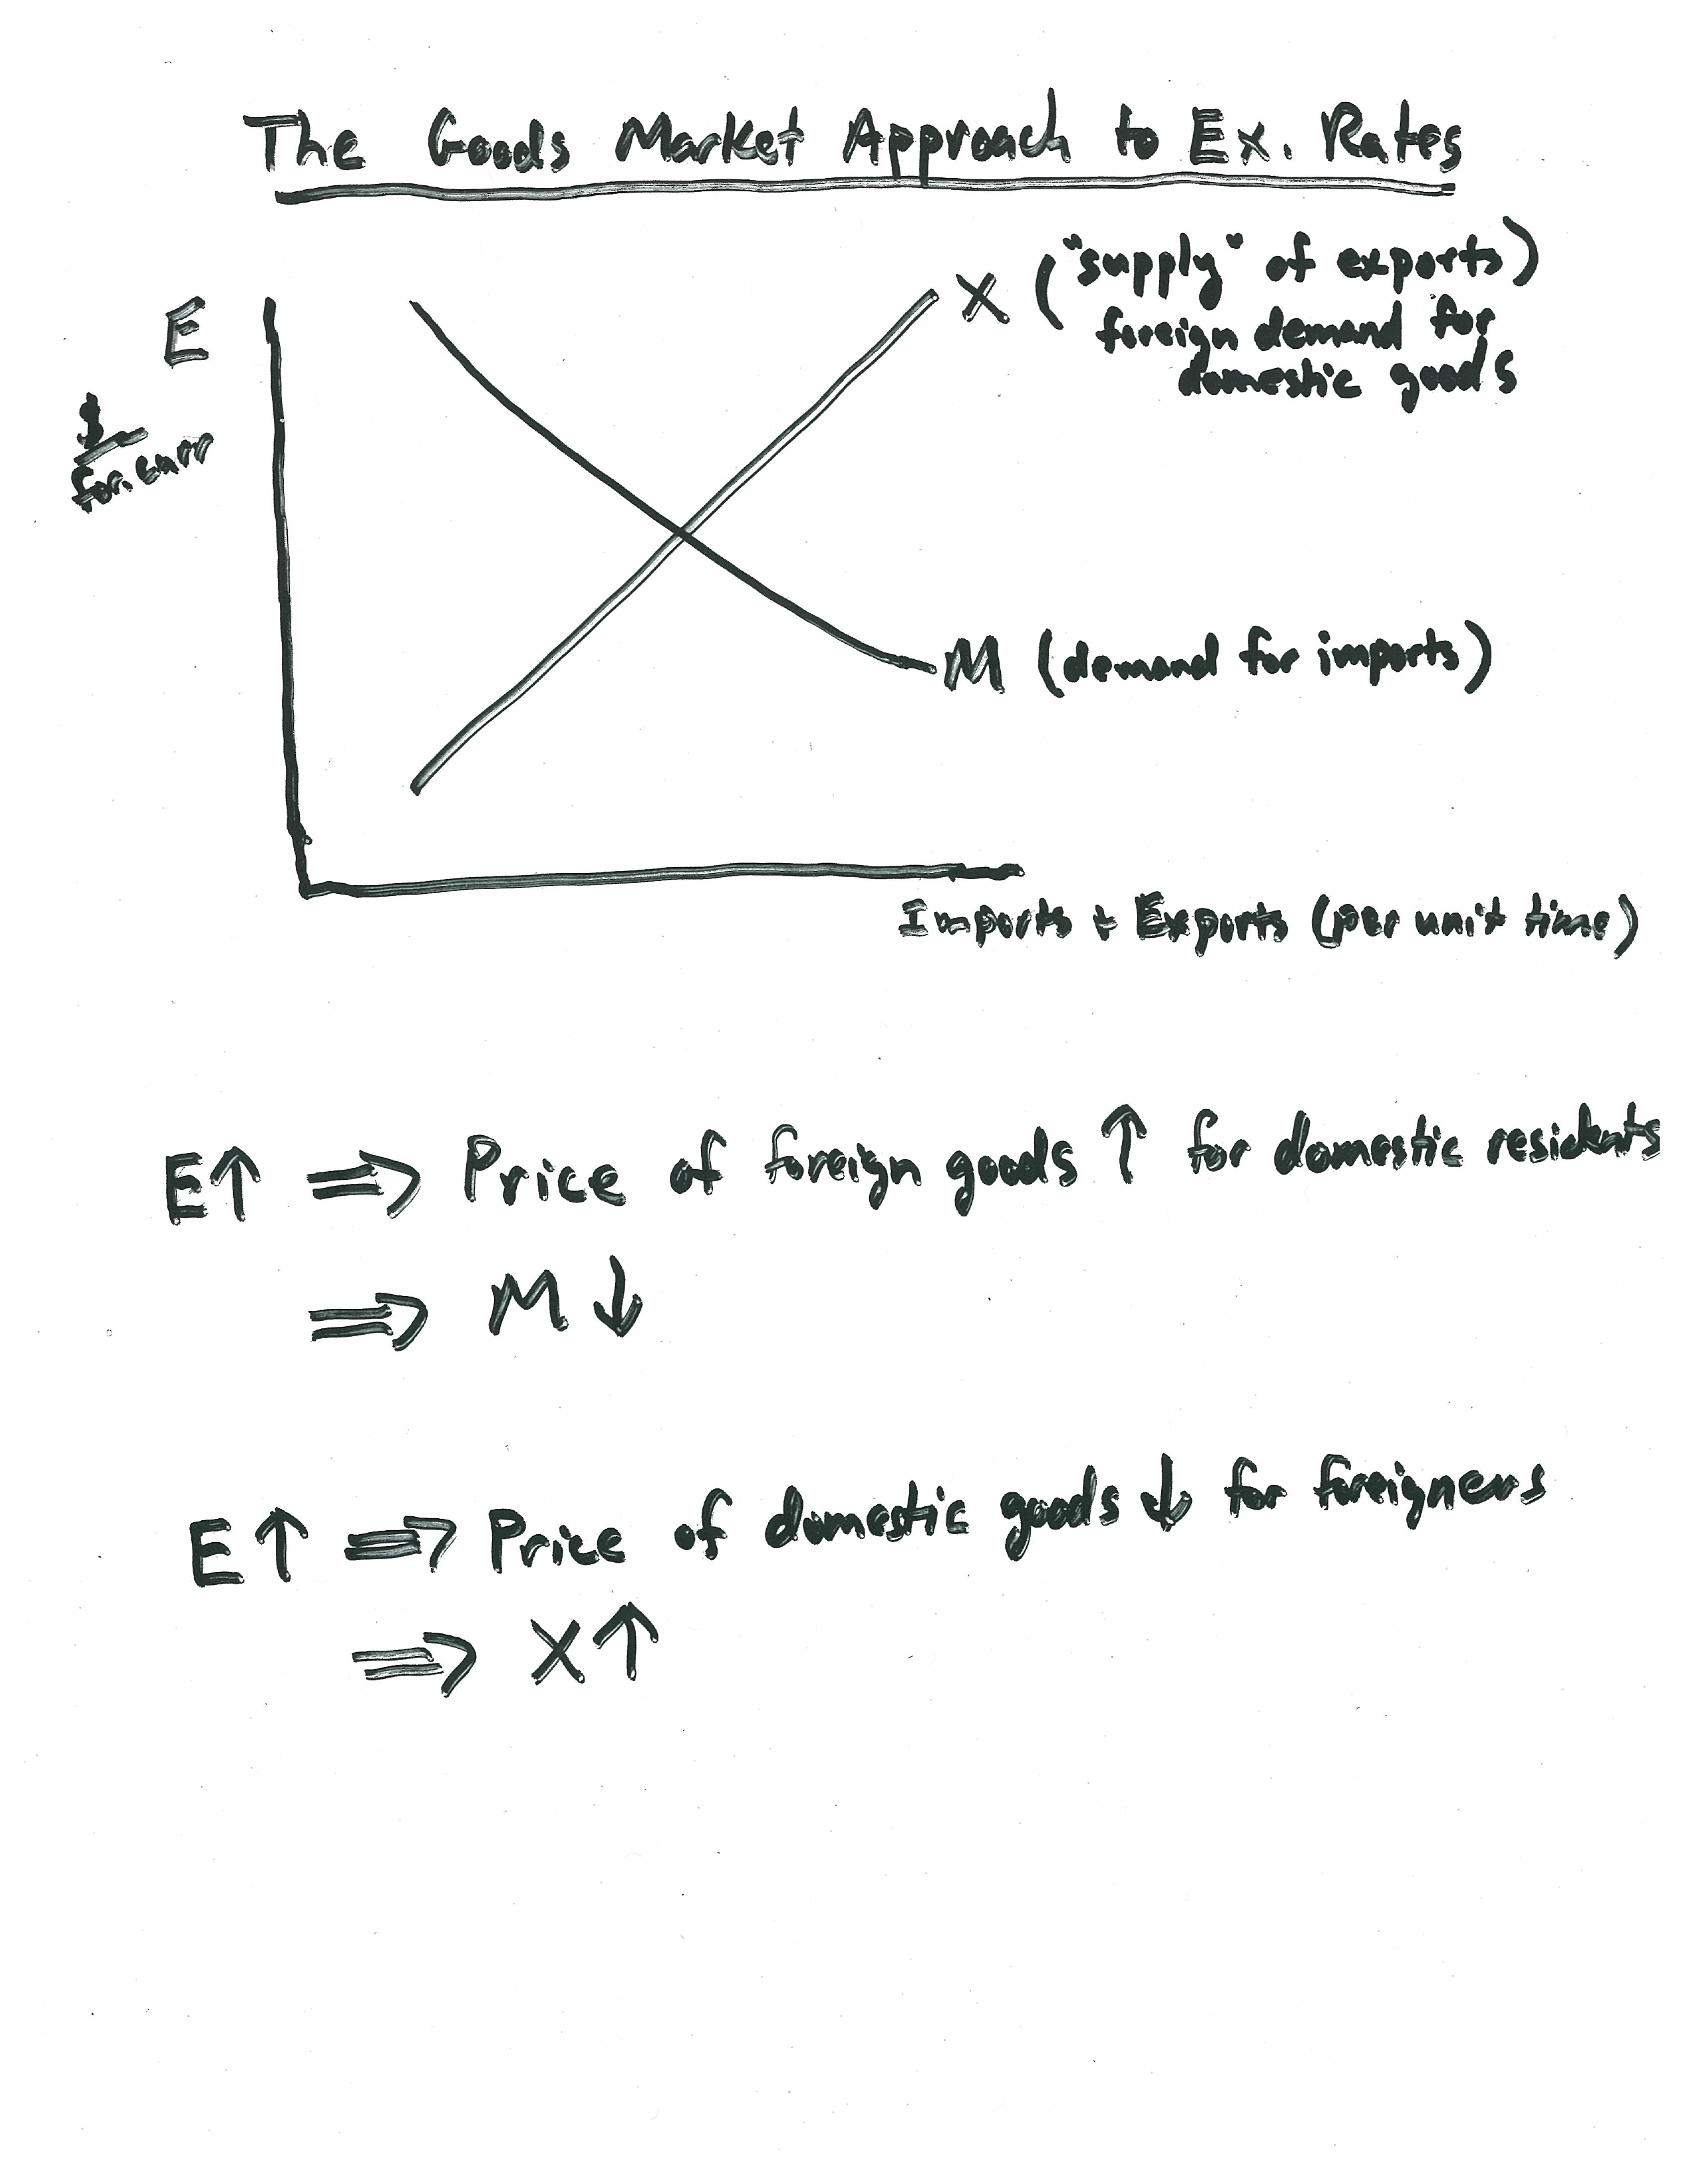 The Goods Market Approach to Ex. Rates
X ("supply" of exports)
foreign demand for
domestic goods
E
$
for. curr
M (demand for imports)
Imports + Exports (per unit time)
E↑ ⇒ Price of foreign goods ↑ for domestic residents
⇒ M ↓
E↑ ⇒ Price of domestic goods ↓ for foreigners
⇒ X↑